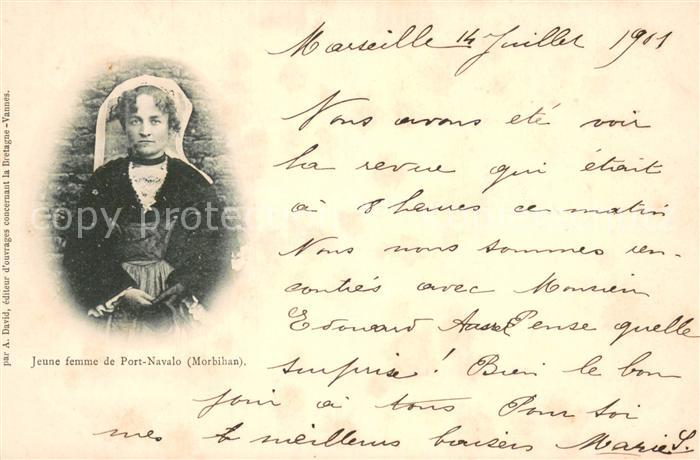 Marseille 14 Juillet 1901
Nous avons été voir
la revue qui était
à 8 heures ce matin
Nous nous sommes ren-
contrés avec Monsieur
Edouard Pense quelle
surprise ! Bien le bon
jour à tous Pour toi
mes meilleurs baisers Marie S.
Jeune femme de Port-Navalo (Morbihan).
par A. David, éditeur d'ouvrages concernant la Bretagne - Vannes.
copy protected